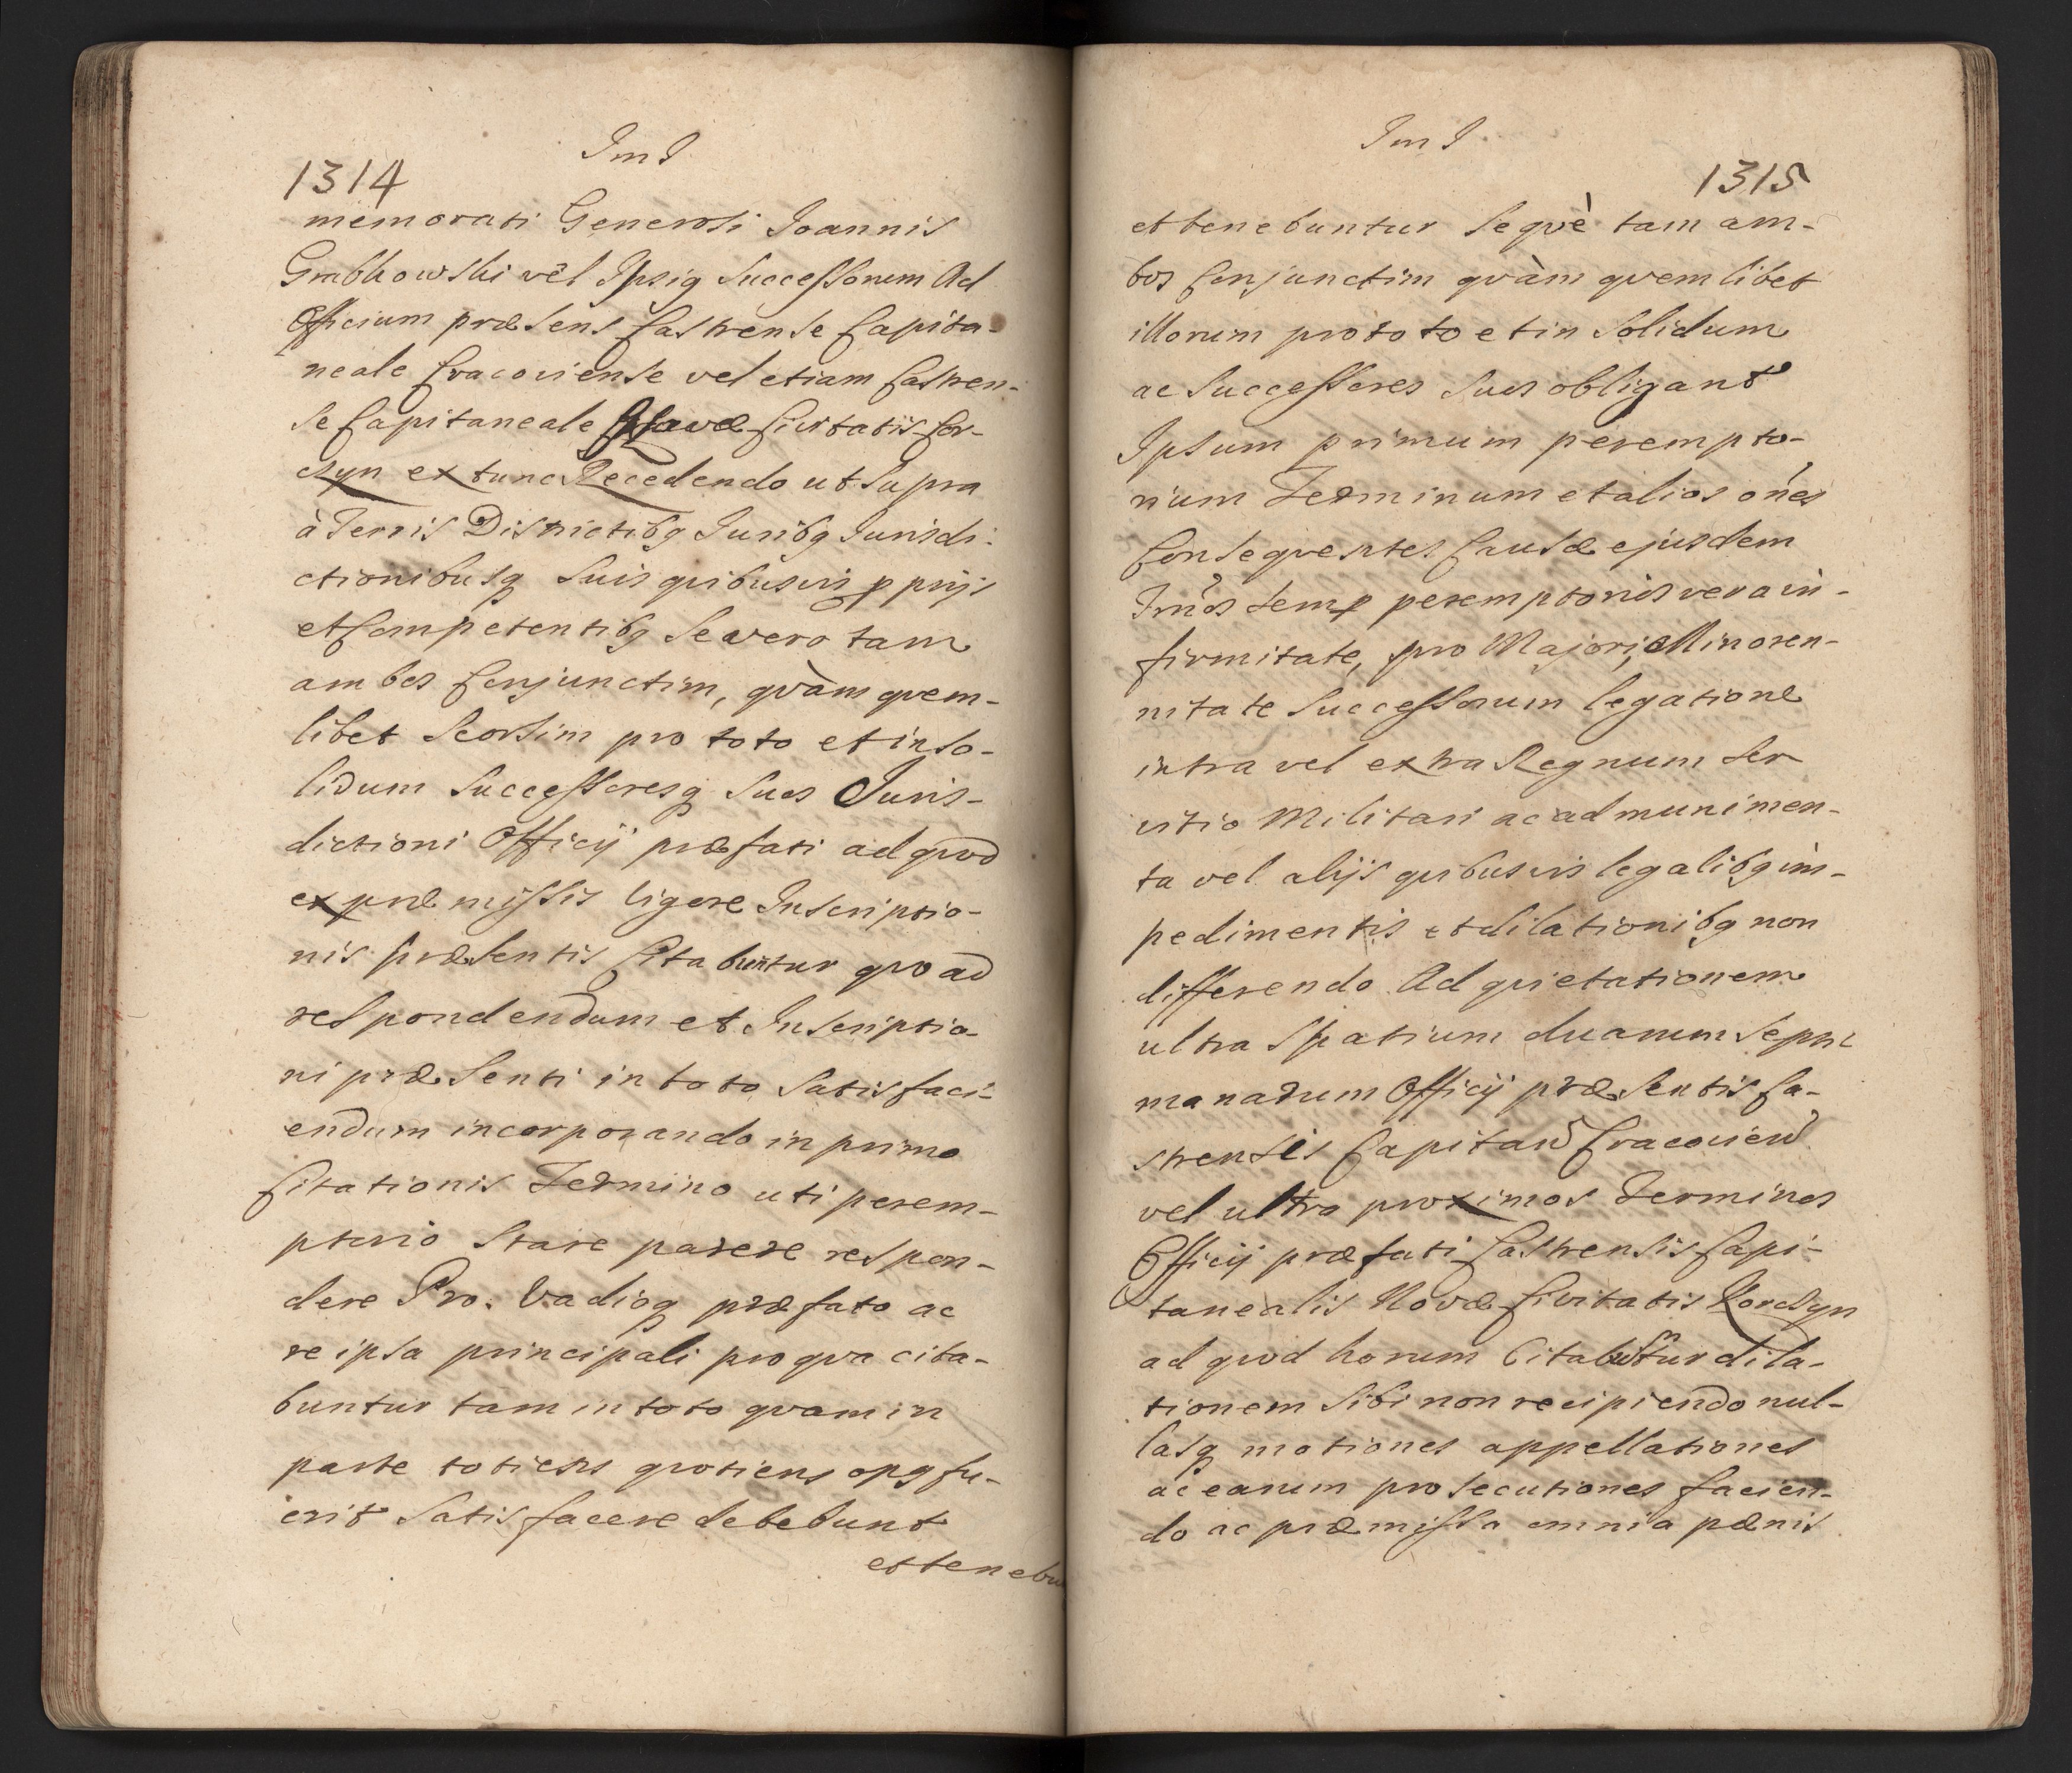 JmJ
1314
memorati Generosi Joannis
Grabkowski vel Ipsiq Successorum Ad
Officium præsens Castrense Capita-
neale Cracoviense vel etiam Castren-
se Capitaneale Civitatis Cor-
czyn ex tunc Recedendo ut Supra
à Terris Districtibq Juribq Jurisdi-
ctionibusq Suis quibusvis pprijs
et Competentibq Se vero tam
ambos Conjunctim, qvàm qvem-
libet Seorsim pro toto et in so-
lidum Successoresq Suos Juris-
dictioni Officij præfati ad qvod
ex præmissis vigore Inscriptio-
nis præsentis Citabuntur qvo ad
respondendum et Inscriptio-
ni præsenti in toto Satisfaci-
endum incorporando in primo
Citationis Termino uti perem-
ptorio Stare parere respon-
dere Pro. Vadioq præfato ac
re ipsa principali pro qva cita-
buntur tam in toto qvam in
parte totiens qvotiens opq fu-
erit Satisfacere debebunt
et tenebu
JmJ
1315
et tenebuntur Seqvè tam am-
bos Conjunctim qvàm qvemlibet
illorum pro toto et in Solidum
ac Successores Suos obligant
Ipsum primum perempto-
rium Terminum et alios oñes
Conseqventes Causæ ejusdem
Tmños temp peremptorios vera in-
firmitate, pro Majori, Minoren-
nitate Successorum legatione
intra vel extra Regnum Ser
vitio Militari ac ad munimen-
ta vel alijs quibusvis legalibq im-
pedimentis et dilationibq non
differendo Ad quietationem
ultra Spatium duarum Septi
manarum Officij præsentis Ca-
strensis Capitan̄ Cracovien̄
vel ultra proximos Terminos
Officij præfati Castrensis Capi-
tanealis Novæ Civitatis Korczyn
ad qvod horum Citabuntur dila-
tionem Sibi non recipiendo nul-
lasq motiones appellationes
ac earum prosecutiones facien-
do ac præmissa omnia pænis